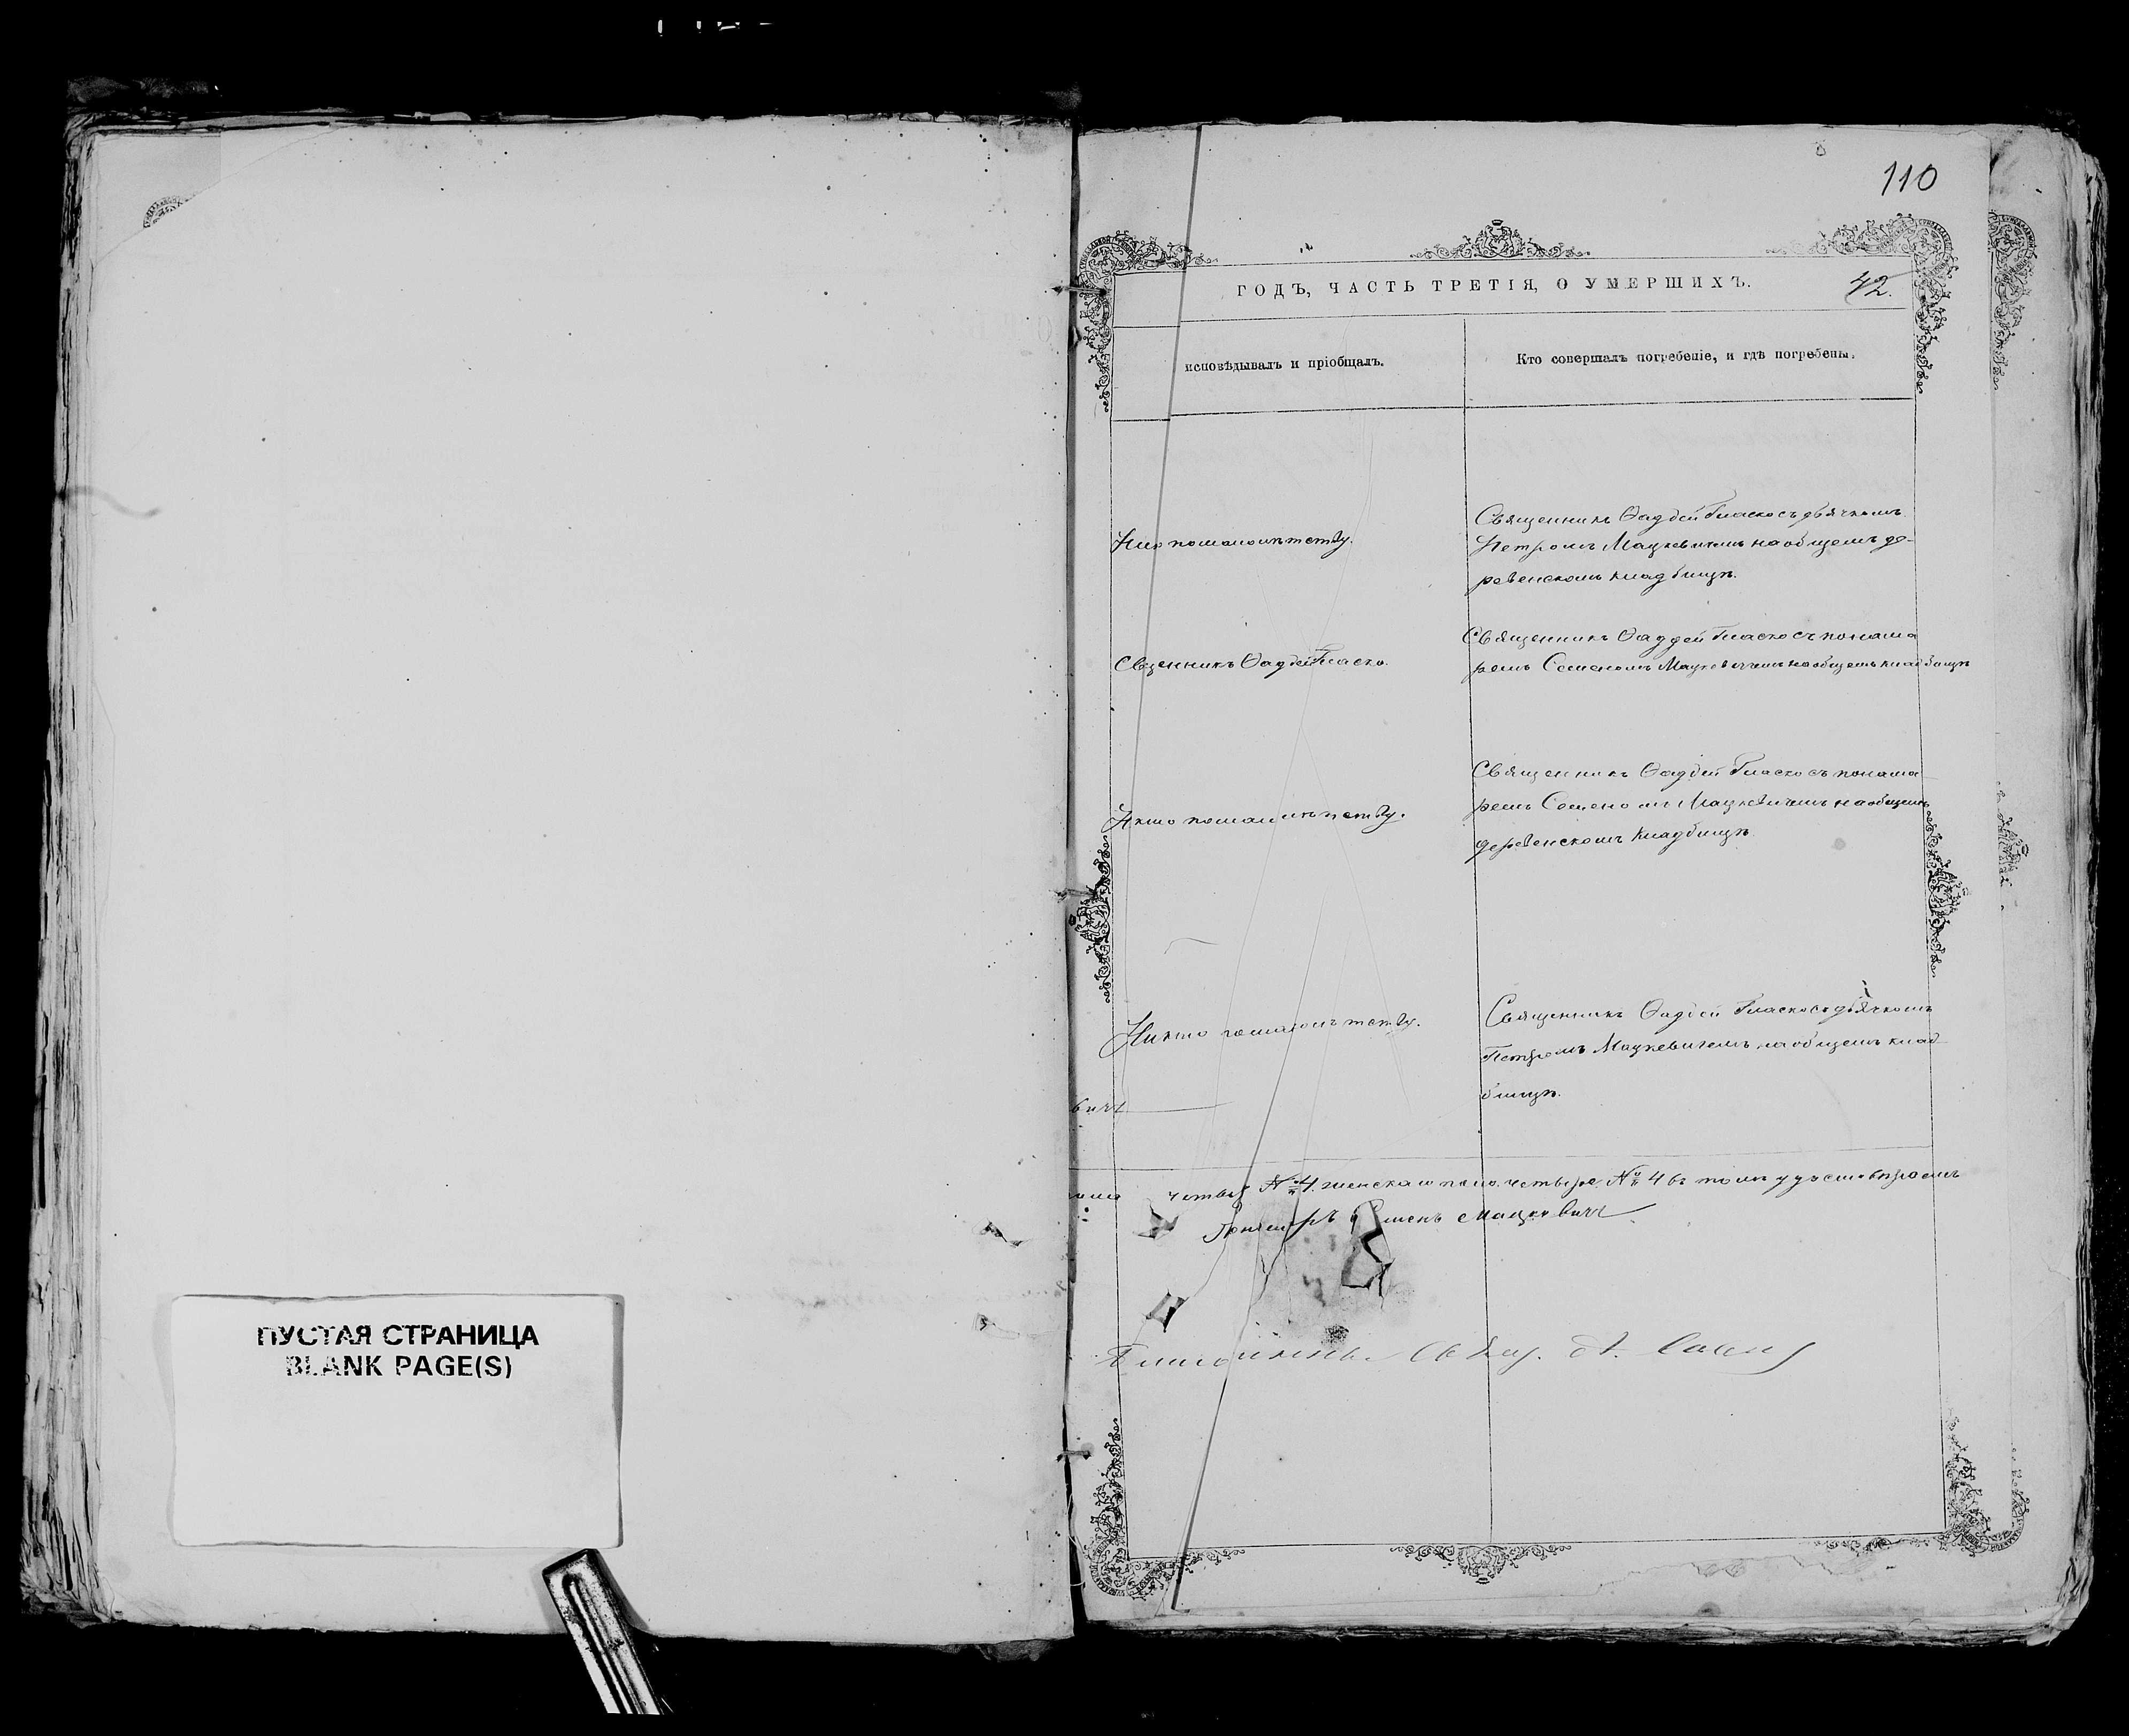 110
ГОДЪ, ЧАСТЬ ТРЕТІЯ, О УМЕРШИХЪ.
42.
исповѣдывалъ и пріобщалъ.
Кто совершалъ погребеніе, и гдѣ погребены.
по малолѣтству.
Священникъ Ѳаддей Гласко съ дьячкомъ
Петромъ Мацкевичемъ на общемъ де-
ревенскомъ кладбищѣ.
Свщенникъ Ѳаддей Гласко.
Священникъ Ѳаддей Гласко съ понама
ремъ Семеномъ Мацкевичемъ на общемъ кладбищѣ
по малолѣтству.
Священникъ Ѳаддей Гласко съ понама
ремъ Семеномъ Мацкевичемъ на общемъ
деревенскомъ кладбищѣ
Никто по малолѣтству.
Священникъ Ѳаддей Гласко съ дьячкомъ
Петромъ Мацкевичемъ на общемъ клад
бищѣ.
вичъ
№ 4. женска четыре № 4 въ томъ
Мацкевичъ
ПУСТАЯ СТРАНИЦА
BLANK PAGE(S)